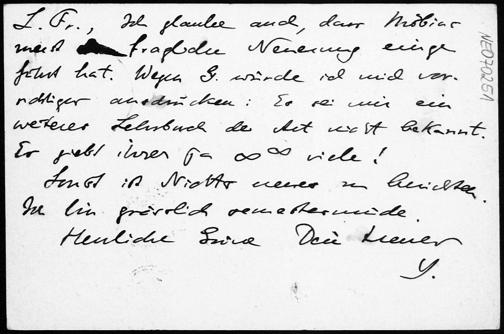 L. Fr., Ich glaube auch, dass Möbius
zuerst fragliche Neuerung einge
führt hat. Wegen G. würde ich mich vor-
sichtiger ausdrücken: Es sei mir ein
weiteres Lehrbuch der Art nicht bekannt.
Es giebt ihrer ja ∞^∞ viele!
Sonst ist Nichts neues zu berichten.
Ich bin grässlich semestermüde.
Herzliche Grüsse Dein treuer
Y.
NE070251